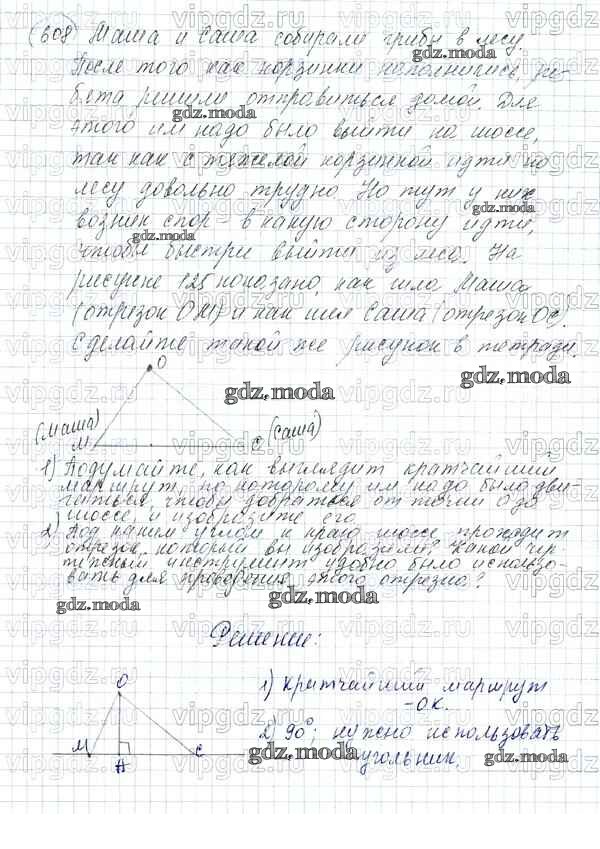 608) Маша и Саша собирали грибы в лесу.
После того как корзинки наполнились, ре-
бята решили отправиться домой. Для
этого им надо было выйти на шоссе,
так как с тяжелой корзинкой идти по
лесу довольно трудно. Но тут у них
возник спор - в какую сторону идти,
чтобы быстрее выйти из леса. На
рисунке 125 показано, как шла Маша
(отрезок ОМ) и как шел Саша (отрезок ОС).
Сделайте такой же рисунок в тетради.
О
(Маша)
М
С
(Саша)
1) Подумайте, как выглядит кратчайший
маршрут, по которому им надо было дви-
гаться, чтобы добраться от точки О до
шоссе и изобразите его.
2) Под каким углом к краю шоссе проходит
отрезок, который вы изобразили? Какой чер-
тежный инструмент удобно было использо-
вать для проведения этого отрезка?
Решение:
О
М
Н
С
1) Кратчайший маршрут
- ОК.
2) 90°; нужно использовать
угольник.
vipgdz.ru
gdz.moda